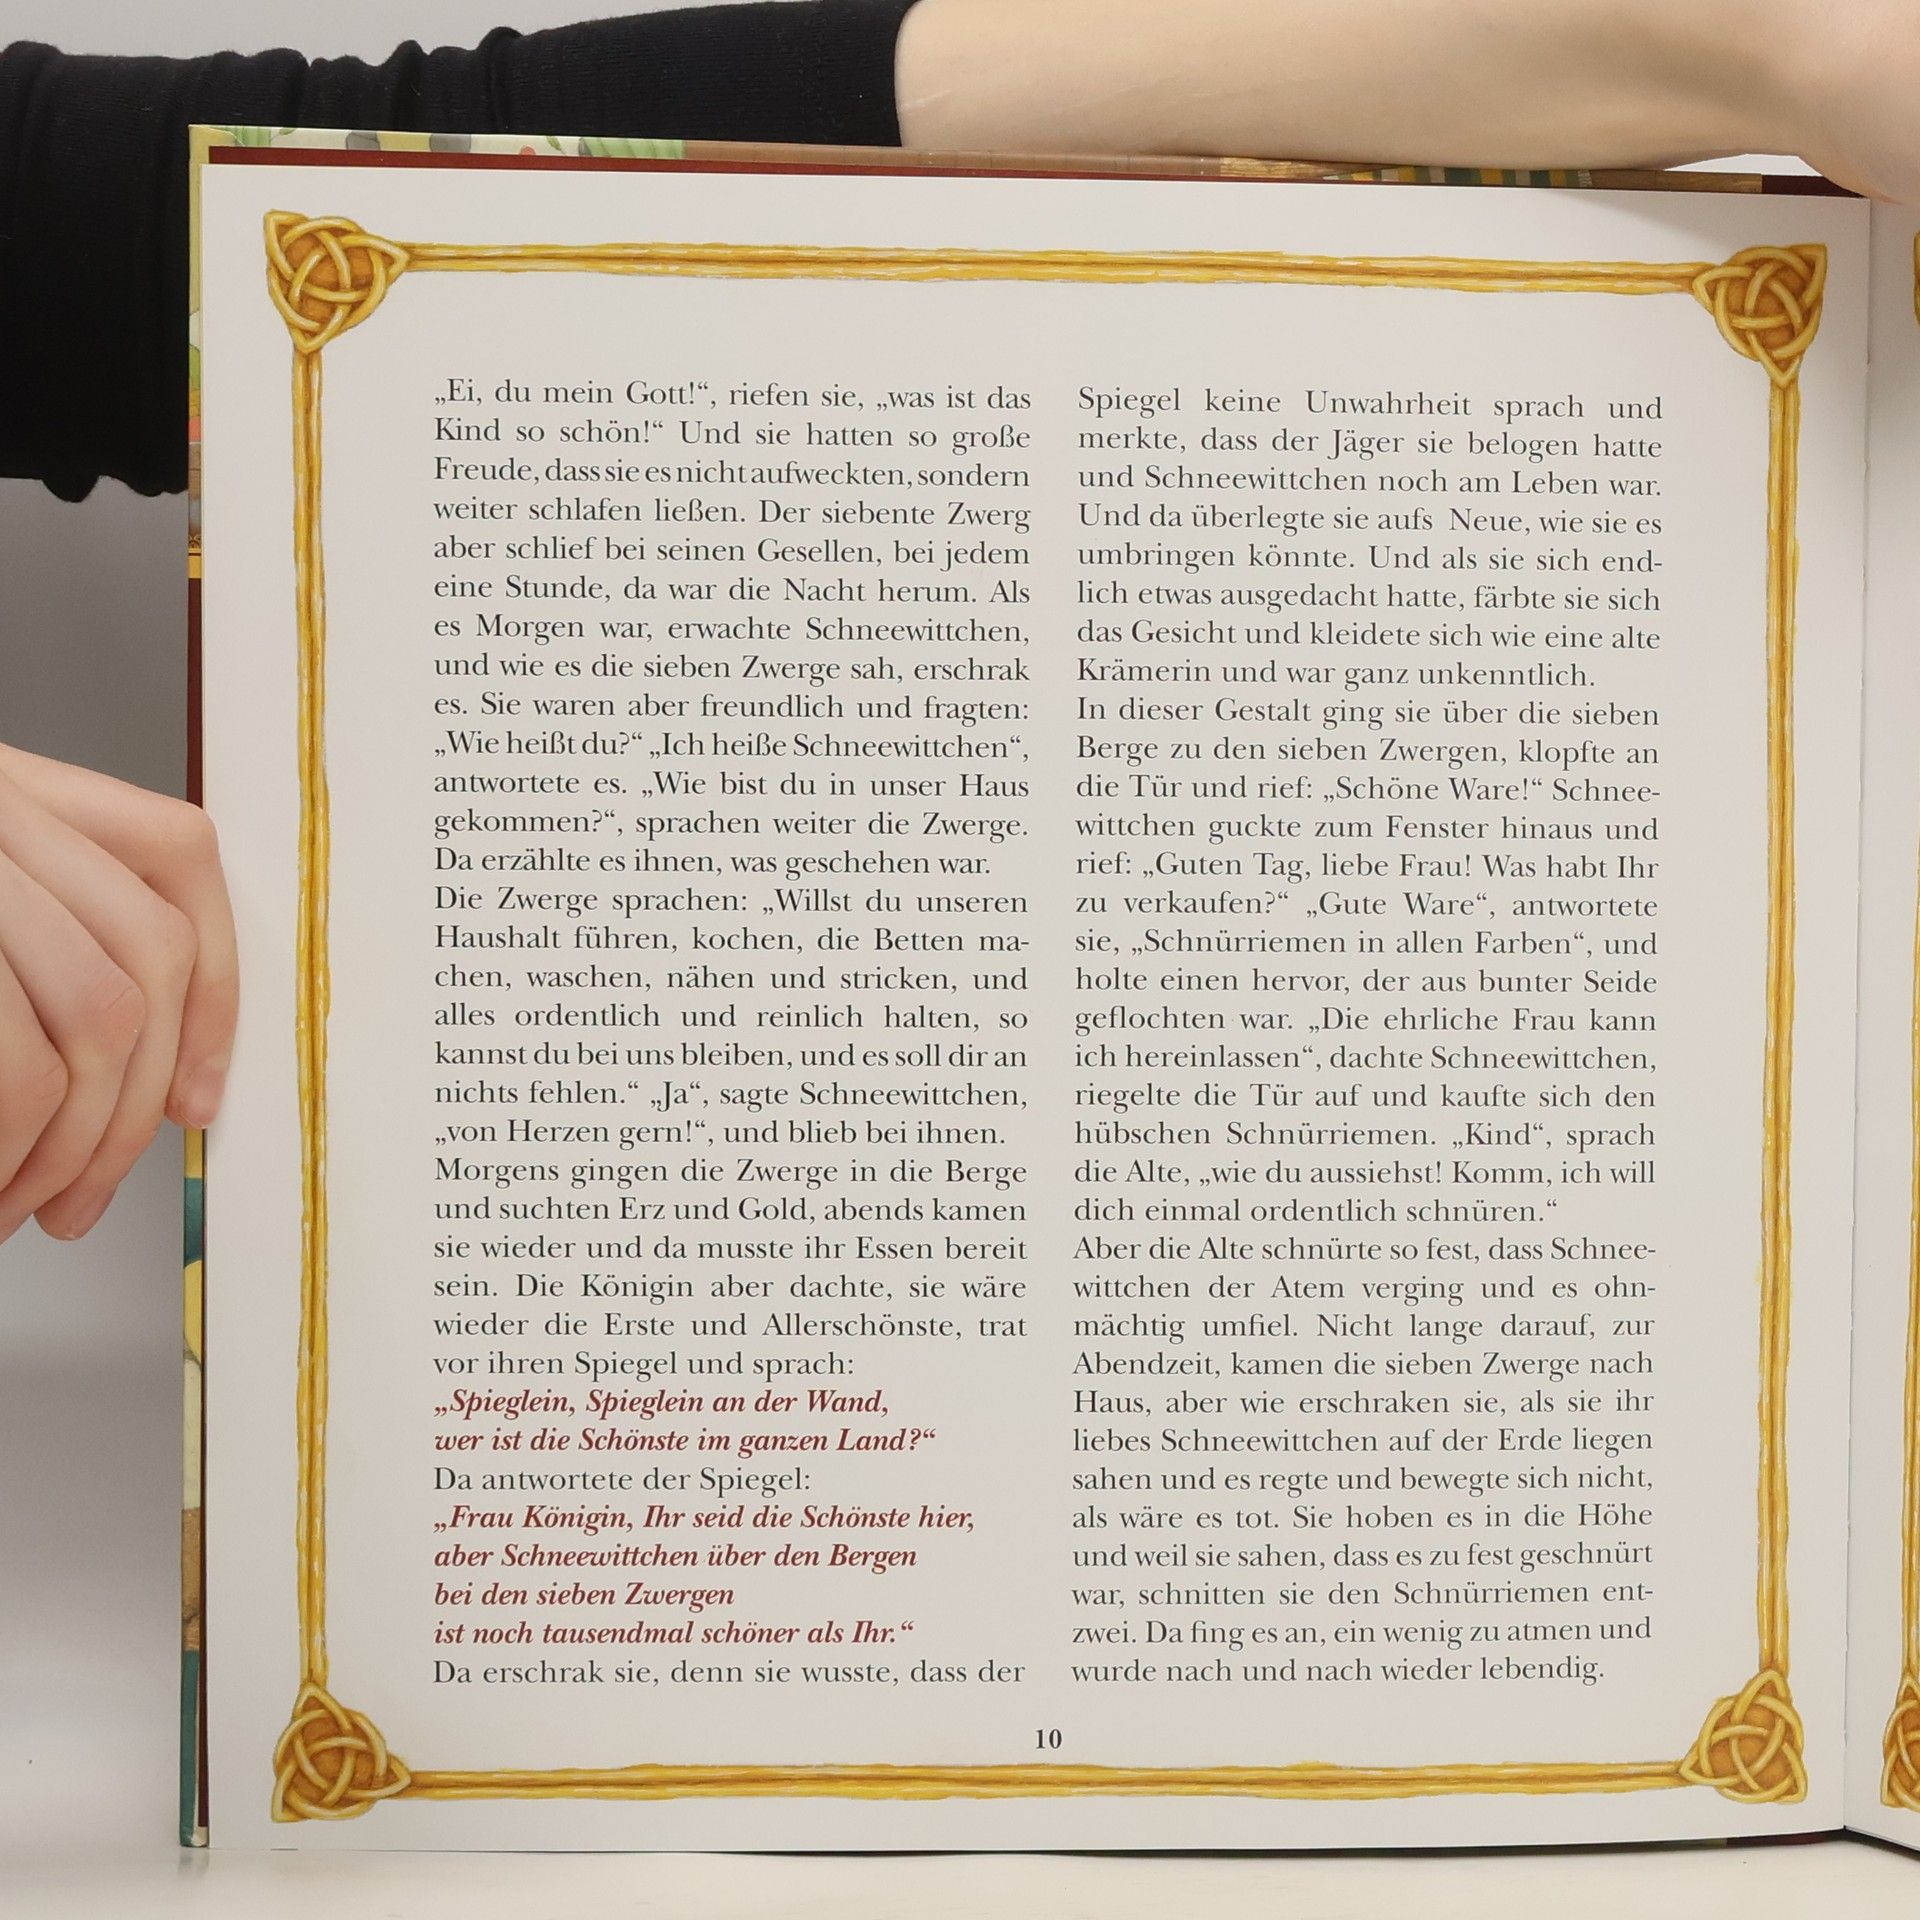 „Ei, du mein Gott!“, riefen sie, „was ist das
Kind so schön!“ Und sie hatten so große
Freude, dass sie es nicht aufweckten, sondern
weiter schlafen ließen. Der siebente Zwerg
aber schlief bei seinen Gesellen, bei jedem
eine Stunde, da war die Nacht herum. Als
es Morgen war, erwachte Schneewittchen,
und wie es die sieben Zwerge sah, erschrak
es. Sie waren aber freundlich und fragten:
„Wie heißt du?“ „Ich heiße Schneewittchen“,
antwortete es. „Wie bist du in unser Haus
gekommen?“, sprachen weiter die Zwerge.
Da erzählte es ihnen, was geschehen war.
Die Zwerge sprachen: „Willst du unseren
Haushalt führen, kochen, die Betten ma-
chen, waschen, nähen und stricken, und
alles ordentlich und reinlich halten, so
kannst du bei uns bleiben, und es soll dir an
nichts fehlen.“ „Ja“, sagte Schneewittchen,
„von Herzen gern!“, und blieb bei ihnen.
Morgens gingen die Zwerge in die Berge
und suchten Erz und Gold, abends kamen
sie wieder und da musste ihr Essen bereit
sein. Die Königin aber dachte, sie wäre
wieder die Erste und Allerschönste, trat
vor ihren Spiegel und sprach:
„Spieglein, Spieglein an der Wand,
wer ist die Schönste im ganzen Land?“
Da antwortete der Spiegel:
„Frau Königin, Ihr seid die Schönste hier,
aber Schneewittchen über den Bergen
bei den sieben Zwergen
ist noch tausendmal schöner als Ihr.“
Da erschrak sie, denn sie wusste, dass der
Spiegel keine Unwahrheit sprach und
merkte, dass der Jäger sie belogen hatte
und Schneewittchen noch am Leben war.
Und da überlegte sie aufs Neue, wie sie es
umbringen könnte. Und als sie sich end-
lich etwas ausgedacht hatte, färbte sie sich
das Gesicht und kleidete sich wie eine alte
Krämerin und war ganz unkenntlich.
In dieser Gestalt ging sie über die sieben
Berge zu den sieben Zwergen, klopfte an
die Tür und rief: „Schöne Ware!“ Schnee-
wittchen guckte zum Fenster hinaus und
rief: „Guten Tag, liebe Frau! Was habt Ihr
zu verkaufen?“ „Gute Ware“, antwortete
sie, „Schnürriemen in allen Farben“, und
holte einen hervor, der aus bunter Seide
geflochten war. „Die ehrliche Frau kann
ich hereinlassen“, dachte Schneewittchen,
riegelte die Tür auf und kaufte sich den
hübschen Schnürriemen. „Kind“, sprach
die Alte, „wie du aussiehst! Komm, ich will
dich einmal ordentlich schnüren.“
Aber die Alte schnürte so fest, dass Schnee-
wittchen der Atem verging und es ohn-
mächtig umfiel. Nicht lange darauf, zur
Abendzeit, kamen die sieben Zwerge nach
Haus, aber wie erschraken sie, als sie ihr
liebes Schneewittchen auf der Erde liegen
sahen und es regte und bewegte sich nicht,
als wäre es tot. Sie hoben es in die Höhe
und weil sie sahen, dass es zu fest geschnürt
war, schnitten sie den Schnürriemen ent-
zwei. Da fing es an, ein wenig zu atmen und
wurde nach und nach wieder lebendig.
10